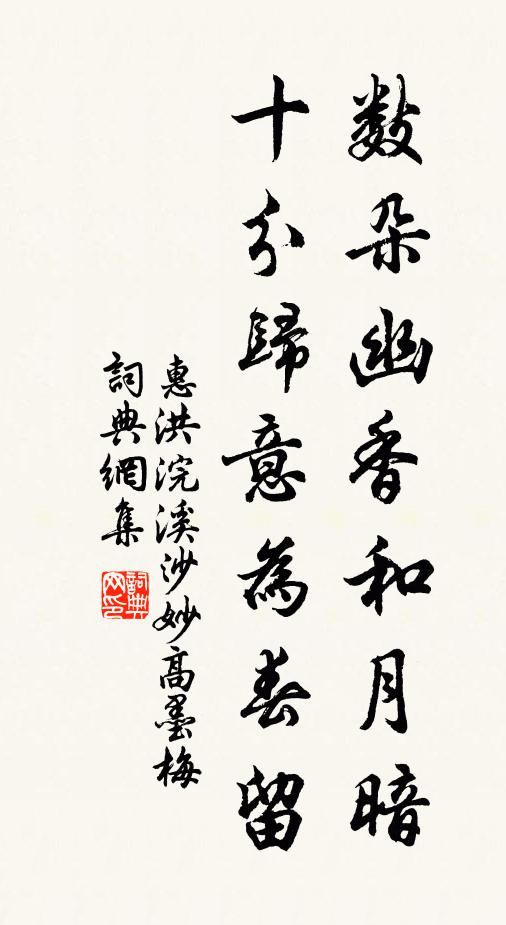 數朵幽香和月暗
十分歸意為春留
惠洪浣溪沙妙高墨梅
詞典網集
詞典网印